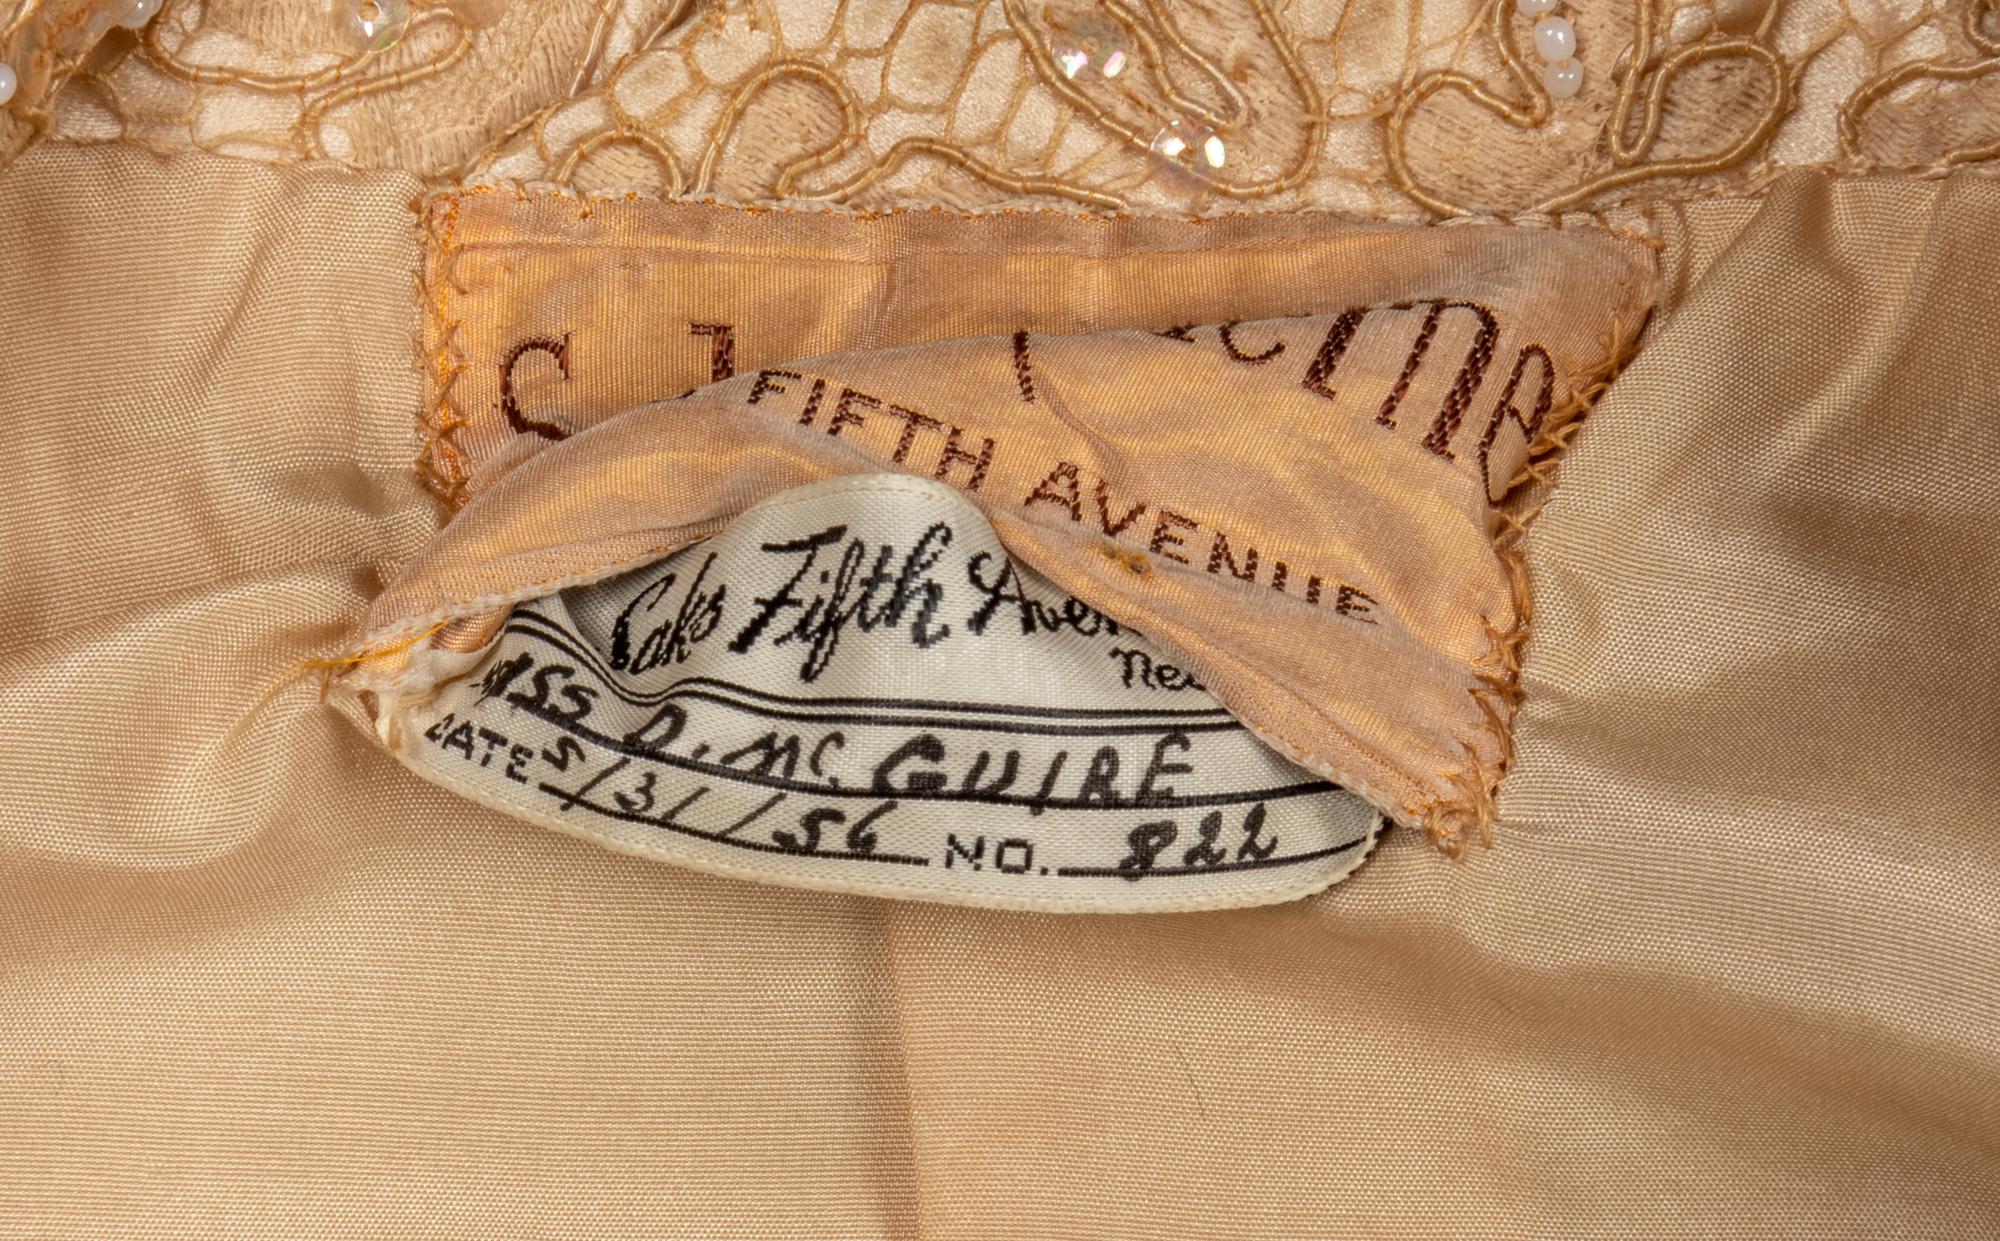 FIFTH AVENUE
Saks Fifth Avenue
MISS D. MC GUIRE
DATE 5/31/56 NO. 822